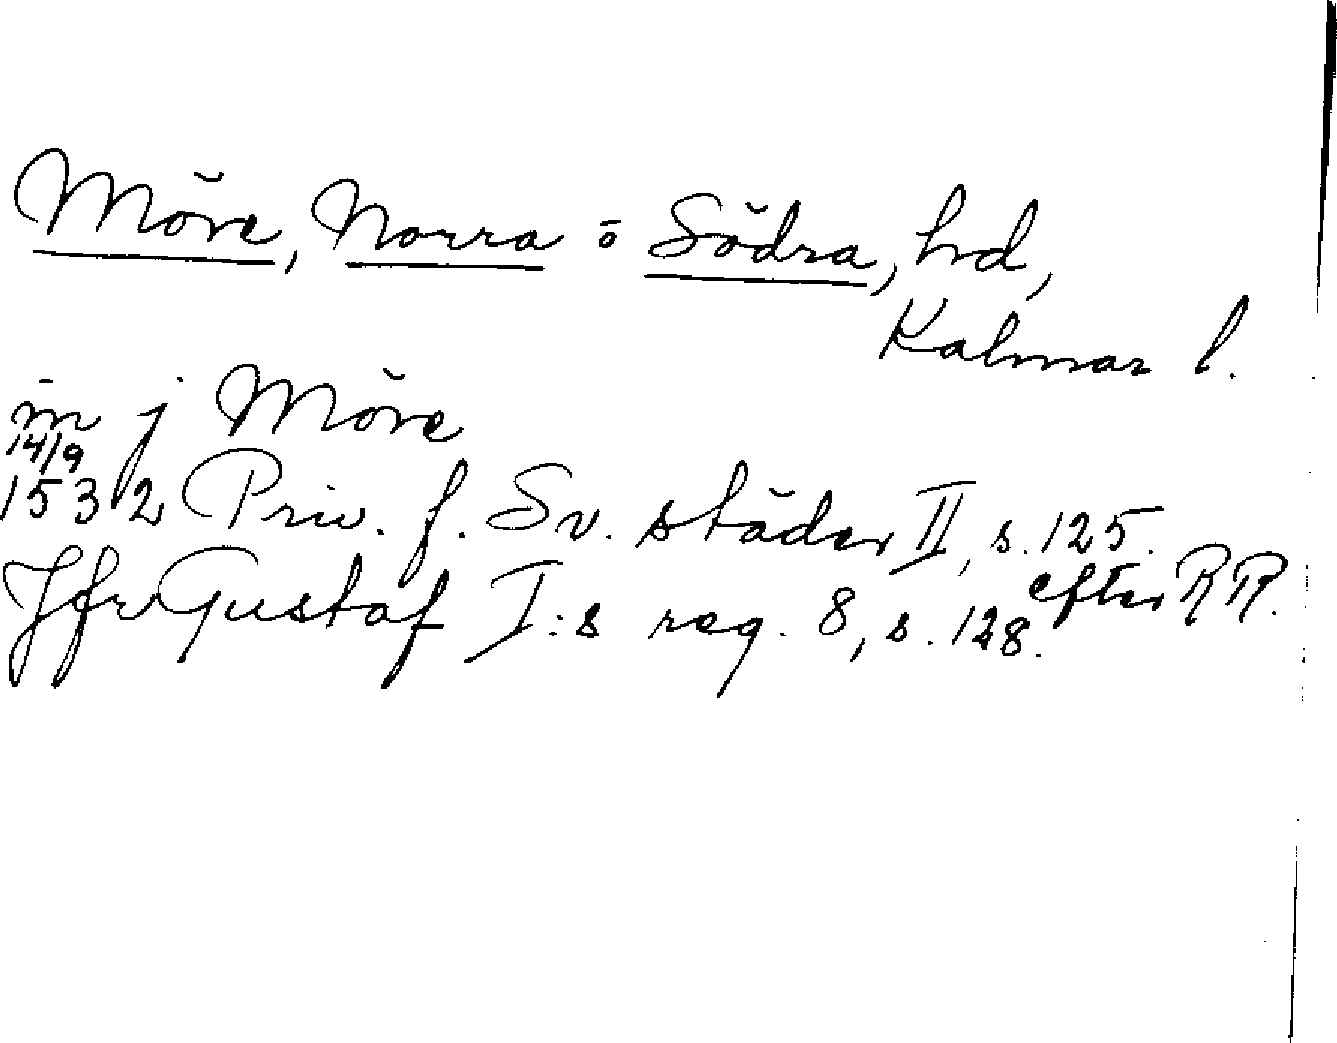 Möre, Norra o Södra, hd,
Kalmar l.
in j Möre
14/9
1532 Priv. f. Sv. städer II, s. 125.
efter RR.
Jfr Gustaf I:s reg. 8, s. 128.